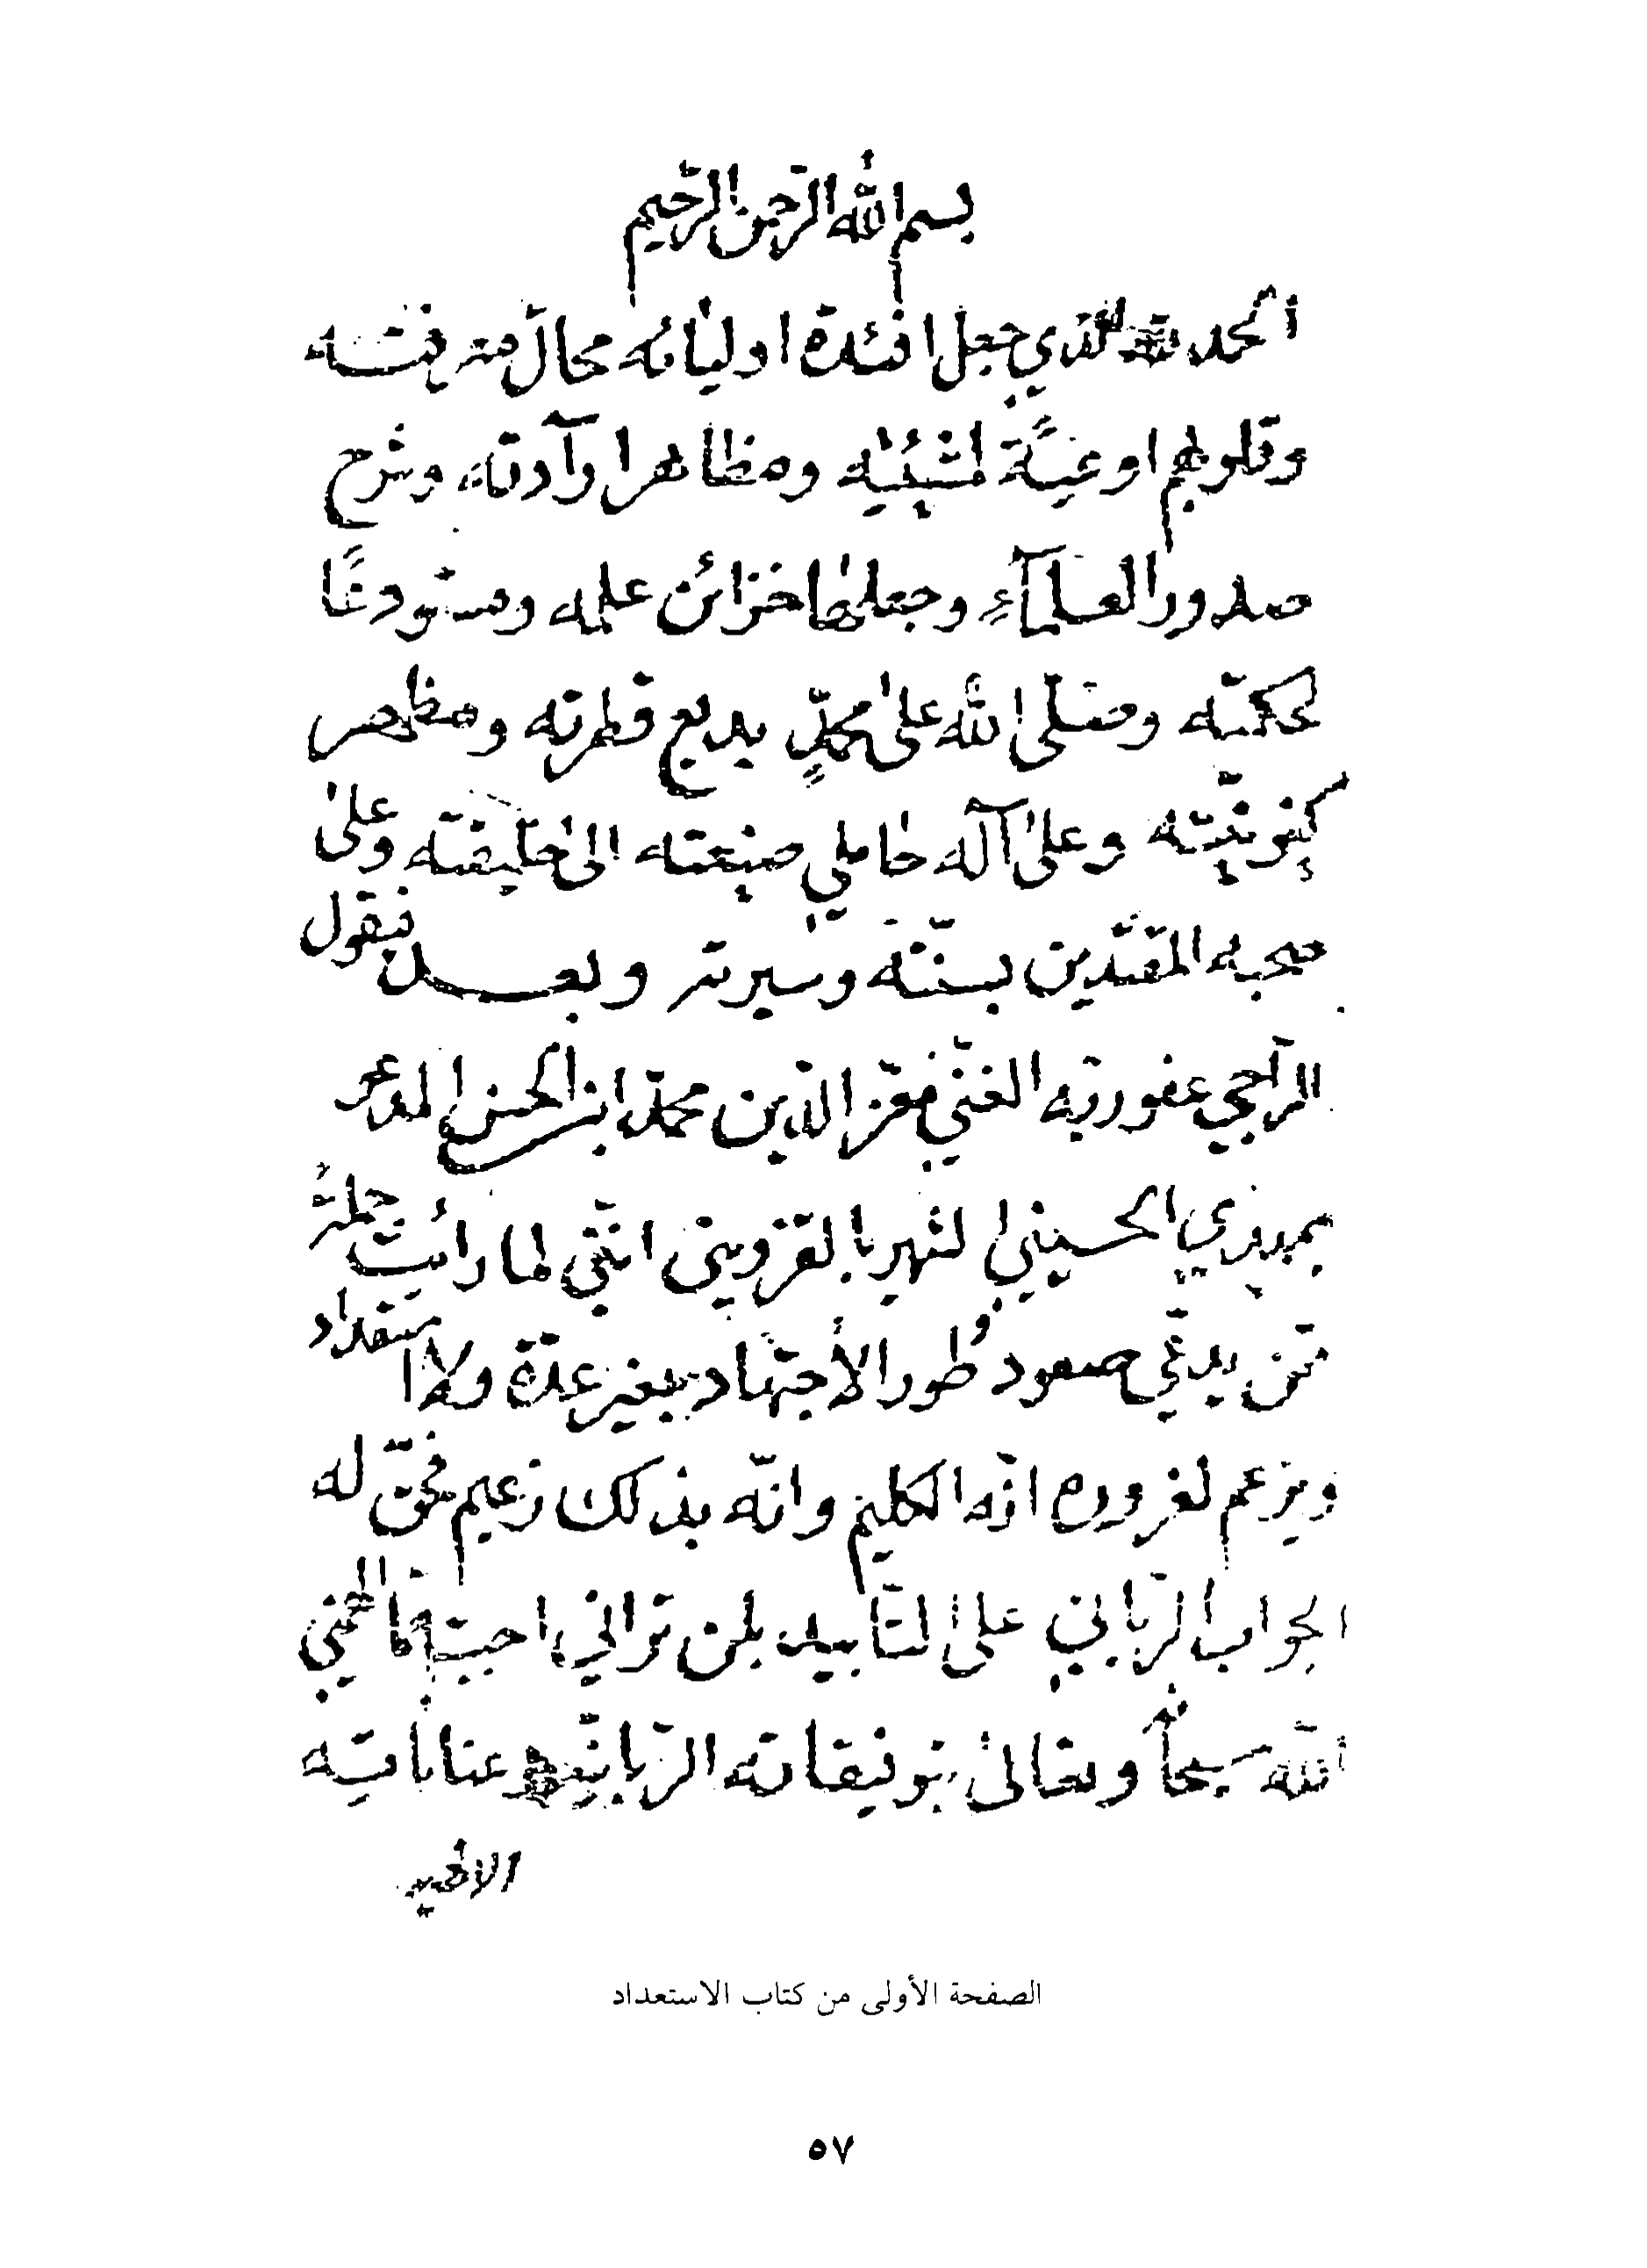 بسم الله الرحمن الرحيم
الحمد لله الذي جعل افئدة اوليائه محالّ معرفته
وقلوبهم اوعيةً لمشيئته ومظاهر ارآدته وشرح
صدور العلمآءِ وجعلها خزائن علمه ومستودعًا
لحكمته وصلّى الله على محمّدٍ بديع فطرته ومظهر
كينونيّته وعلى آله حاملي صنيعته الى خليفته وعلى
صحبه المقتدين بسنّته وسيرته وبعد فيقول
الراجي عفو ربّه الغنّي معّز الدّين محمّد ابن الحسن المدعو
بمهدي الحسيني الشهير بالقزويني انّني لما رأيت جملةً
ممّن يدعّي صعود طور الأجتهاد بغير عدّة ولا استعداد
ويزعم لغروره انّه الكليم وانّه بذلك زعيم فحقّ له
الجواب الرّباني على التّأبيد بلن تراني احببت
الله سبحانه وتعالى بتوفيقاته الرّبانيّة وعناياته